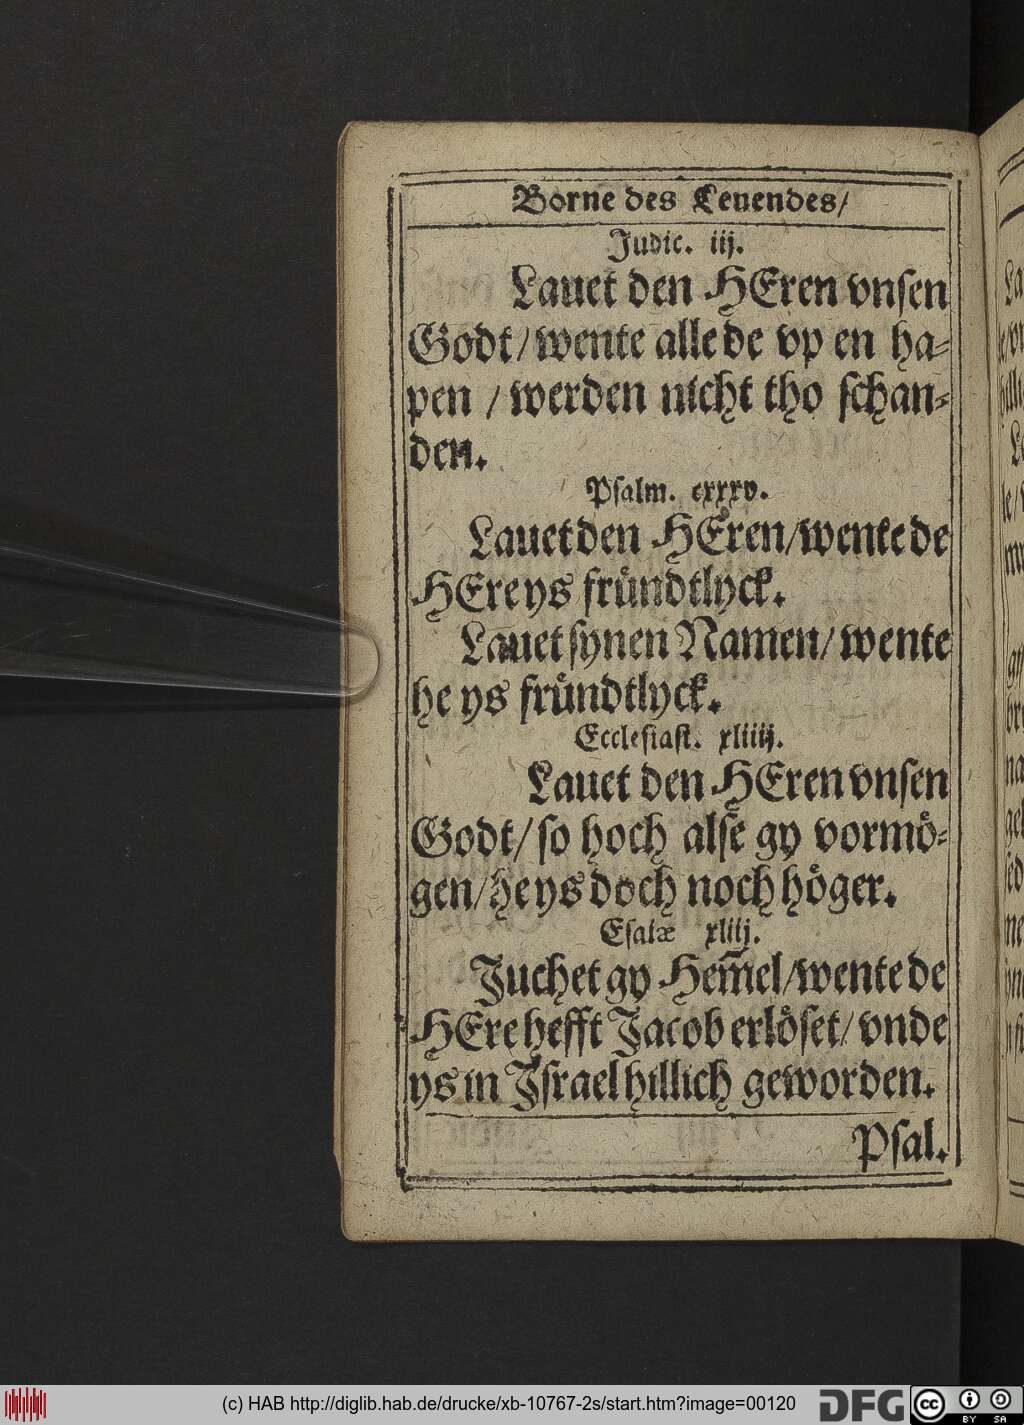 Borne des Leuendes/
Judic. iij.
Lauet den HEren vnsen
Godt/ wente alle de vp en ha⸗
pen / werden nicht tho schan⸗
den.
Psalm. cxxxv.
Lauet den HEren/ wente de
HEre ys fruͤndtlyck.
Lauet synen Namen/ wente
he ys fruͤndtlyck.
Ecclesiast. xliiij.
Lauet den HEren vnsen
Godt/ so hoch alse gy vormoͤ⸗
gen/ he ys doch noch hoͤger.
Esaiæ xliij.
Juchet gy Hem̃el/ wente de
HEre hefft Jacob erloͤset/ vnde
ys in Jsrael hillich geworden.
Psal.
(c) HAB http://diglib.hab.de/drucke/xb-10767-2s/start.htm?image=00120
DFG
cc
BY SA